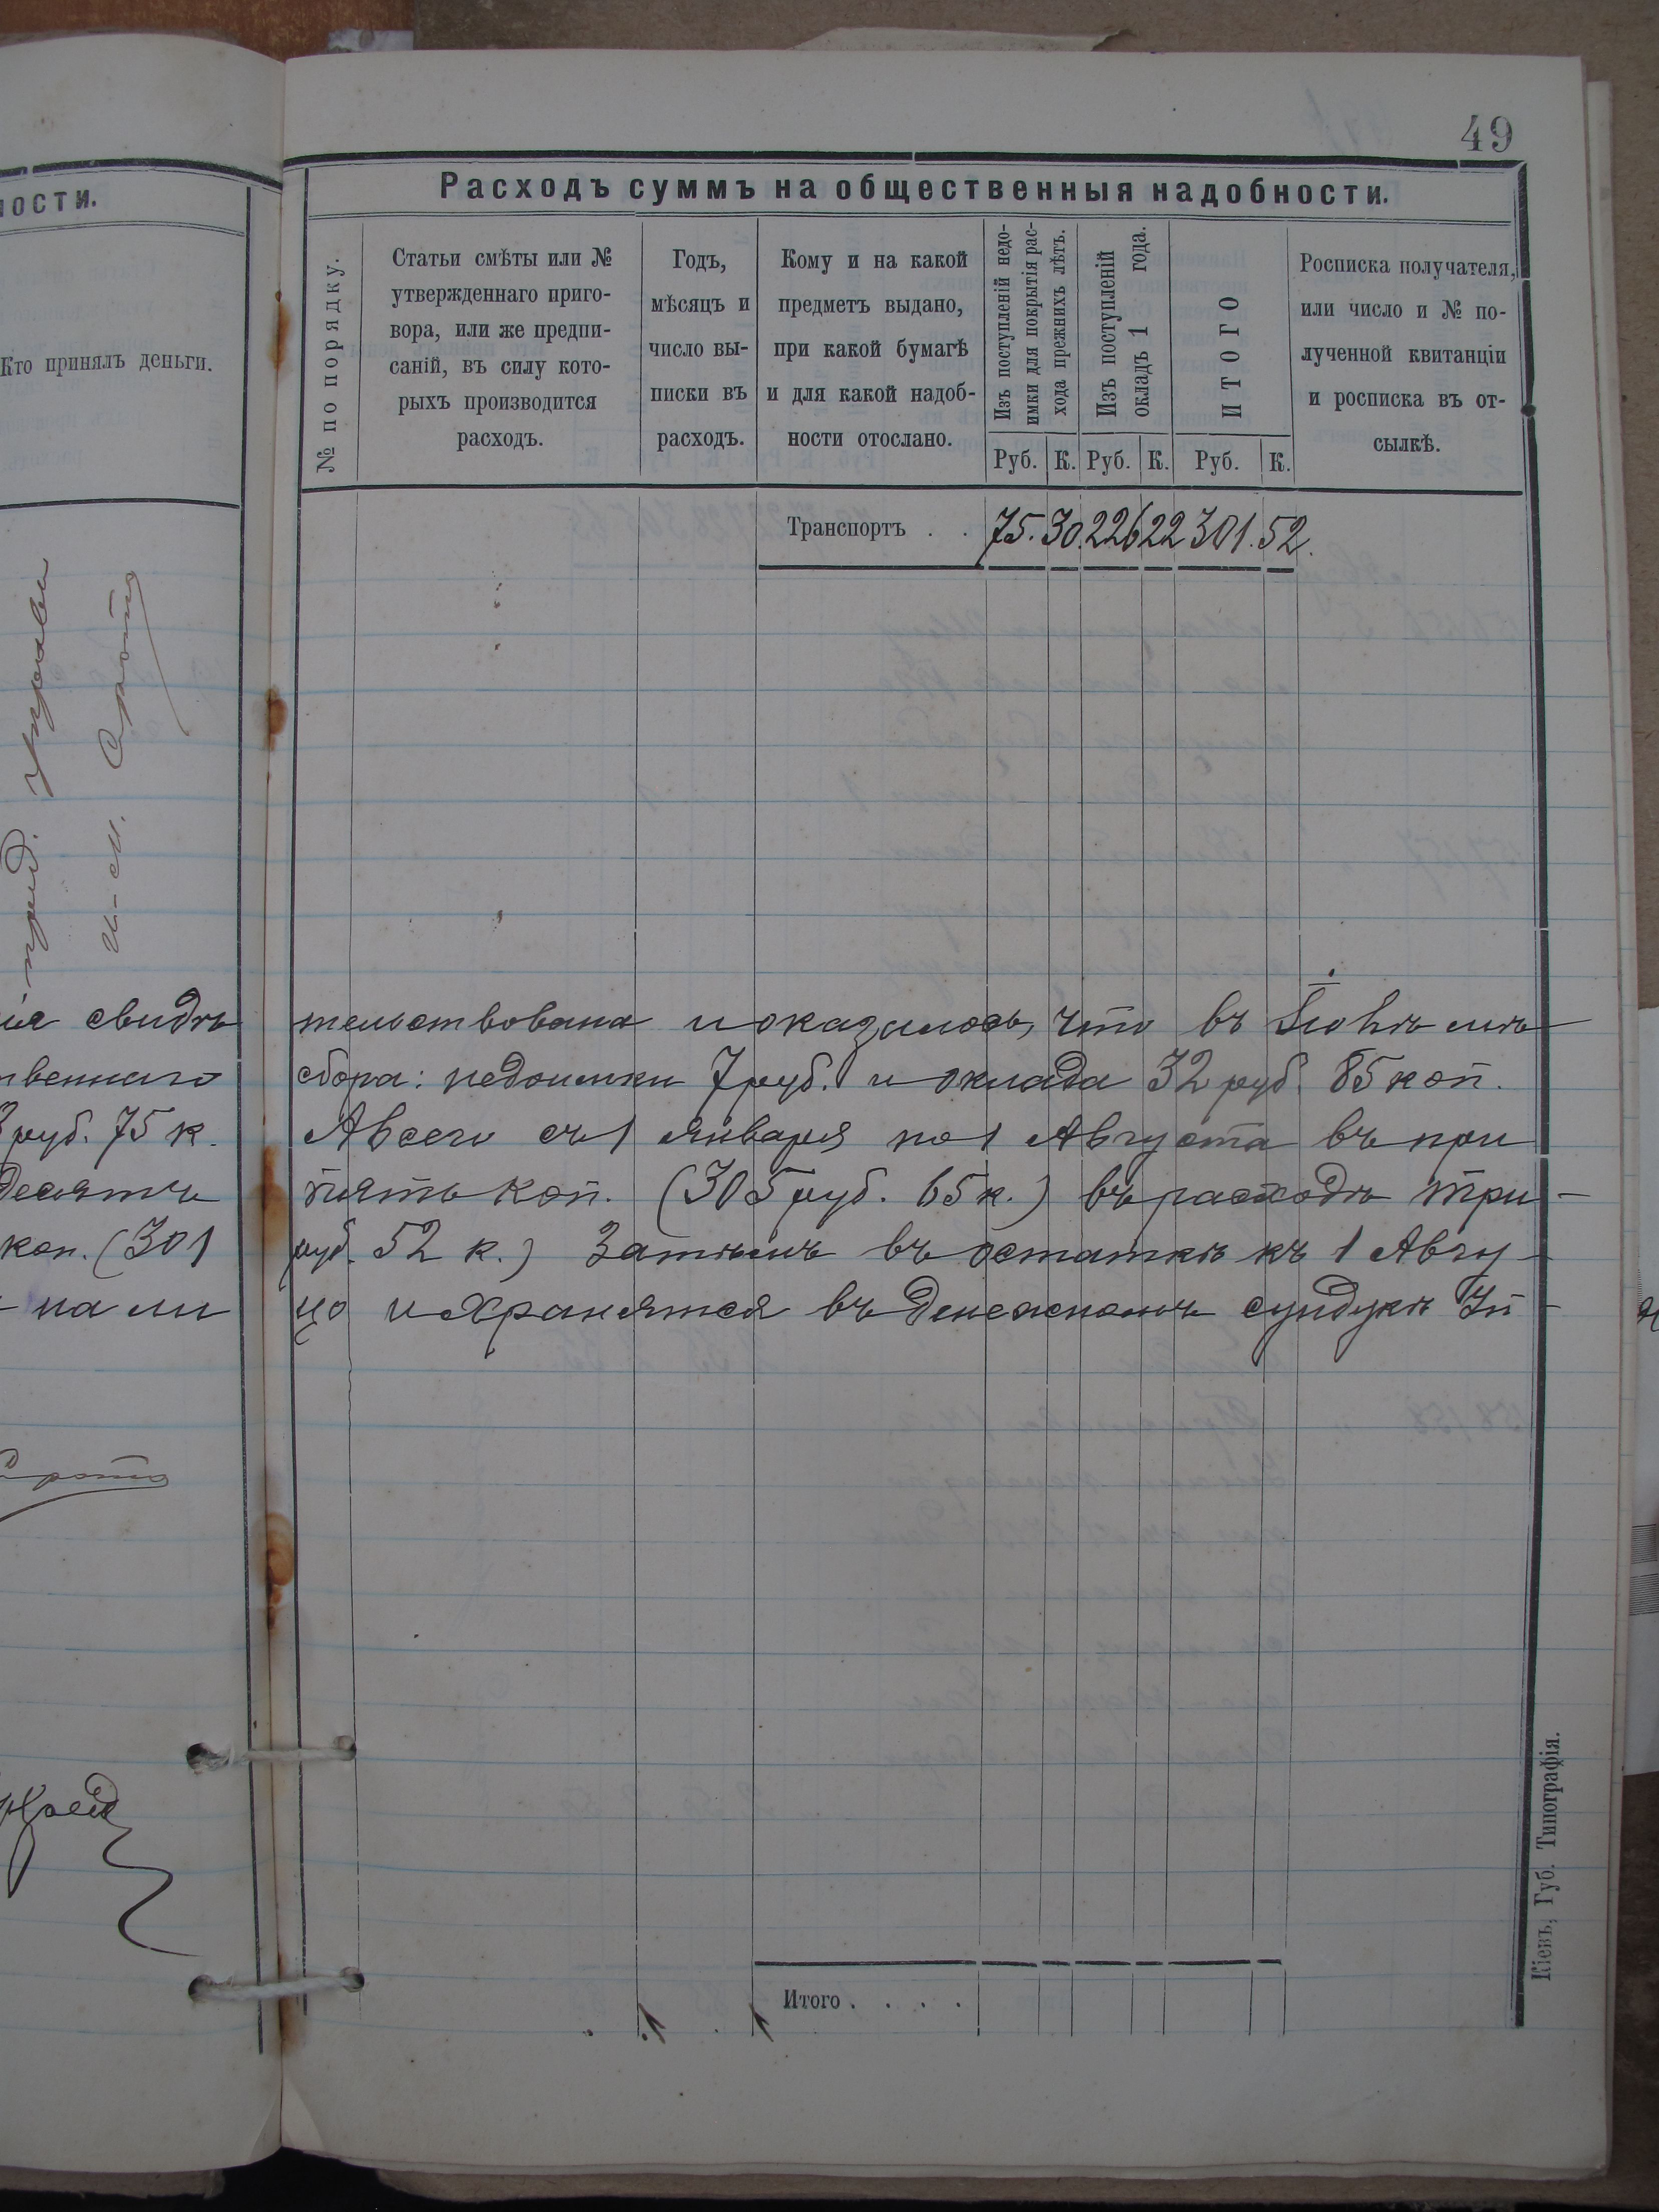 ности.
Кто принялъ деньги.
ія свидѣ
твеннаго
руб. 75 к.
десять
коп. (301
на ли
49
Расходъ суммъ на общественныя надобности.
№ по порядку.
Статьи смѣты или №
утвержденнаго приго-
вора, или же предпи-
саній, въ силу кото-
рыхъ производится
расходъ.
Годъ,
мѣсяцъ и
число вы-
писки въ
расходъ.
Кому и на какой
предметъ выдано,
при какой бумагѣ
и для какой надоб-
ности отослано.
Изъ поступленій недо-
имки для покрытія рас-
хода прежнихъ лѣтъ.
Изъ поступленій
окладъ 1 года.
ИТОГО
Росписка получателя,
или число и № по-
лученной квитанціи
и росписка въ от-
сылкѣ.
Руб. К. Руб. К. Руб. К.
Транспортъ . . 75. 30. 226 22 301. 52.
тельствована и оказалось, что въ Іюлѣ мѣ
сбора: недоимки 7 руб. и оклада 32 руб. 85 коп.
А всего съ 1 января по 1 Августа въ при
пять коп. (305 руб. 65 к.) въ расходѣ три-
руб. 52 к.) Затѣмъ въ остаткѣ къ 1 Авгу-
цо и хранятся въ денежномъ сундукѣ Уп-
Итого . . . .
Кіевъ, Губ. Типографія.